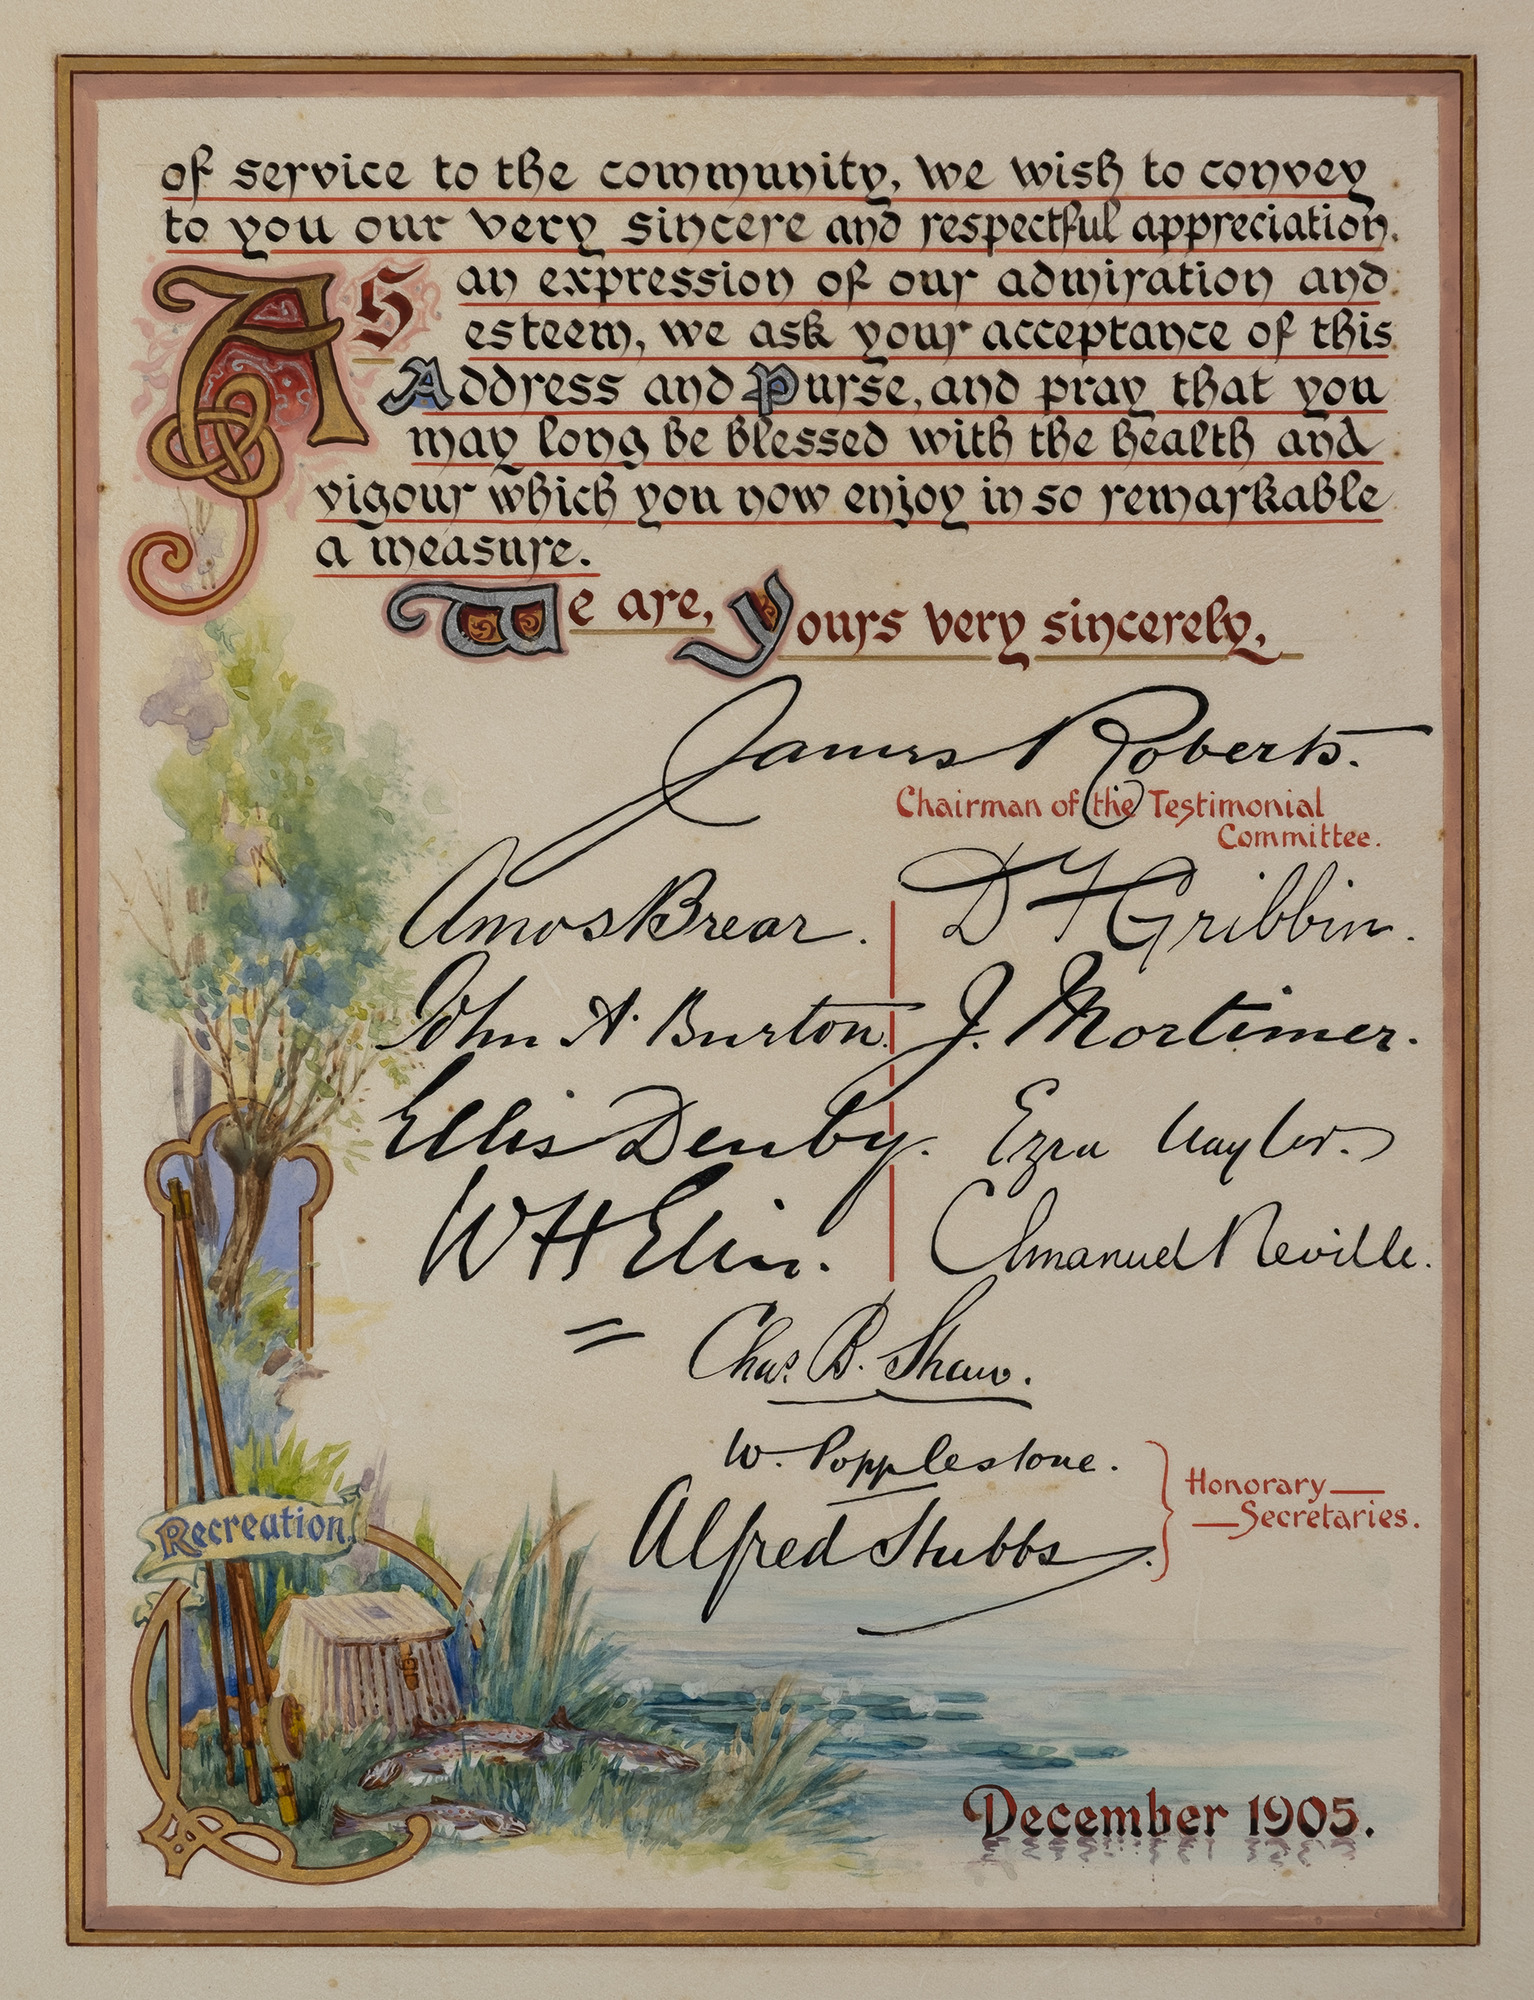 of service to the community, we wish to convey
to you our very sincere and respectful appreciation.
As an expression of our admiration and
esteem, we ask your acceptance of this
Address and Purse, and pray that you
may long be blessed with the health and
vigour which you now enjoy in so remarkable
a measure.
We are, Yours very sincerely,
James Roberts.
Chairman of the Testimonial
Committee.
Amos Brear. D F Gribbin.
John A. Burton. J. Mortimer.
Ellis Denby. Ezra Naylor.
W H Elin. Emanuel Neville.
Chas. B. Shaw.
W. Popplestone.
Alfred Stubbs.
Honorary
Secretaries.
Recreation.
December 1905.